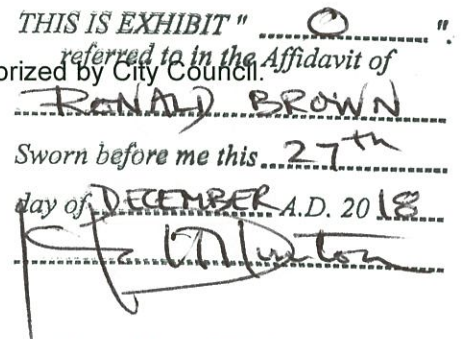 THIS IS EXHIBIT " O ".
referred to in the Affidavit of
orized by City Council.
RONALD BROWN
Sworn before me this 27th
day of DECEMBER A.D. 2018